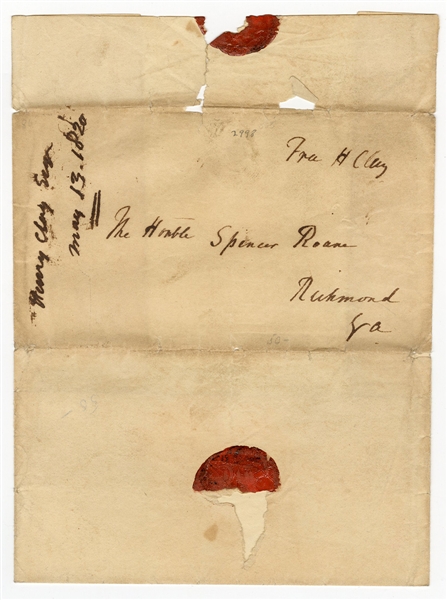 2998
Free H Clay
The Honble Spencer Roane
Richmond
Va
Henry Clay Esqr
May 13. 1820
50-